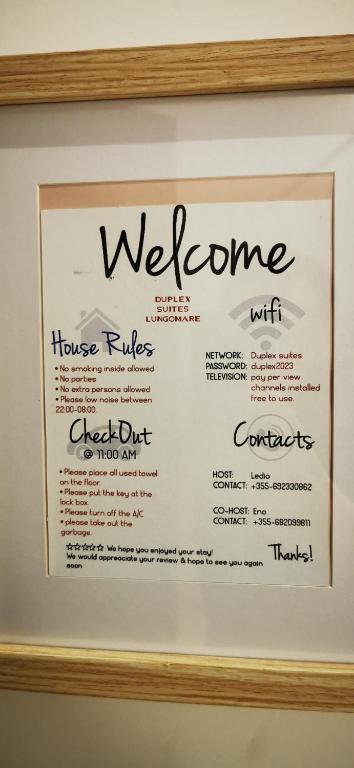 Welcome
DUPLEX
SUITES
LUNGOMARE
wifi
NETWORK: Duplex suites
PASSWORD: duplex2023
TELEVISION: pay per view
channels installed
free to use.
House Rules
• No smoking inside allowed
• No parties
• No extra persons allowed
• Please low noise between
22:00-08:00.
CheckOut
@ 11:00 AM
• Please place all used towel
on the floor.
• Please put the key at the
lock box.
• Please turn off the A/C
• please take out the
garbage.
Contacts
HOST: Ledio
CONTACT: +355-692330862
CO-HOST: Eno
CONTACT: +355-682099811
☆☆☆☆☆ We hope you enjoyed your stay!
We would appreaciate your review & hope to see you again
soon
Thanks!